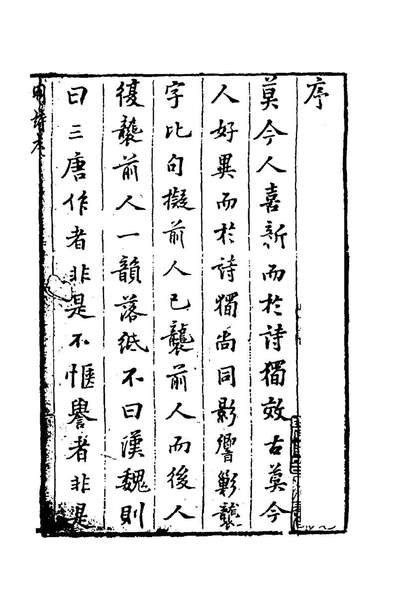 序
莫今人喜新而於詩獨效古莫今
人好異而於詩獨尚同影響剿襲
字比句擬前人已襲前人而後人
復襲前人一韻落紙不曰漢魏則
曰三唐作者非是不愜譽者非是
明詩